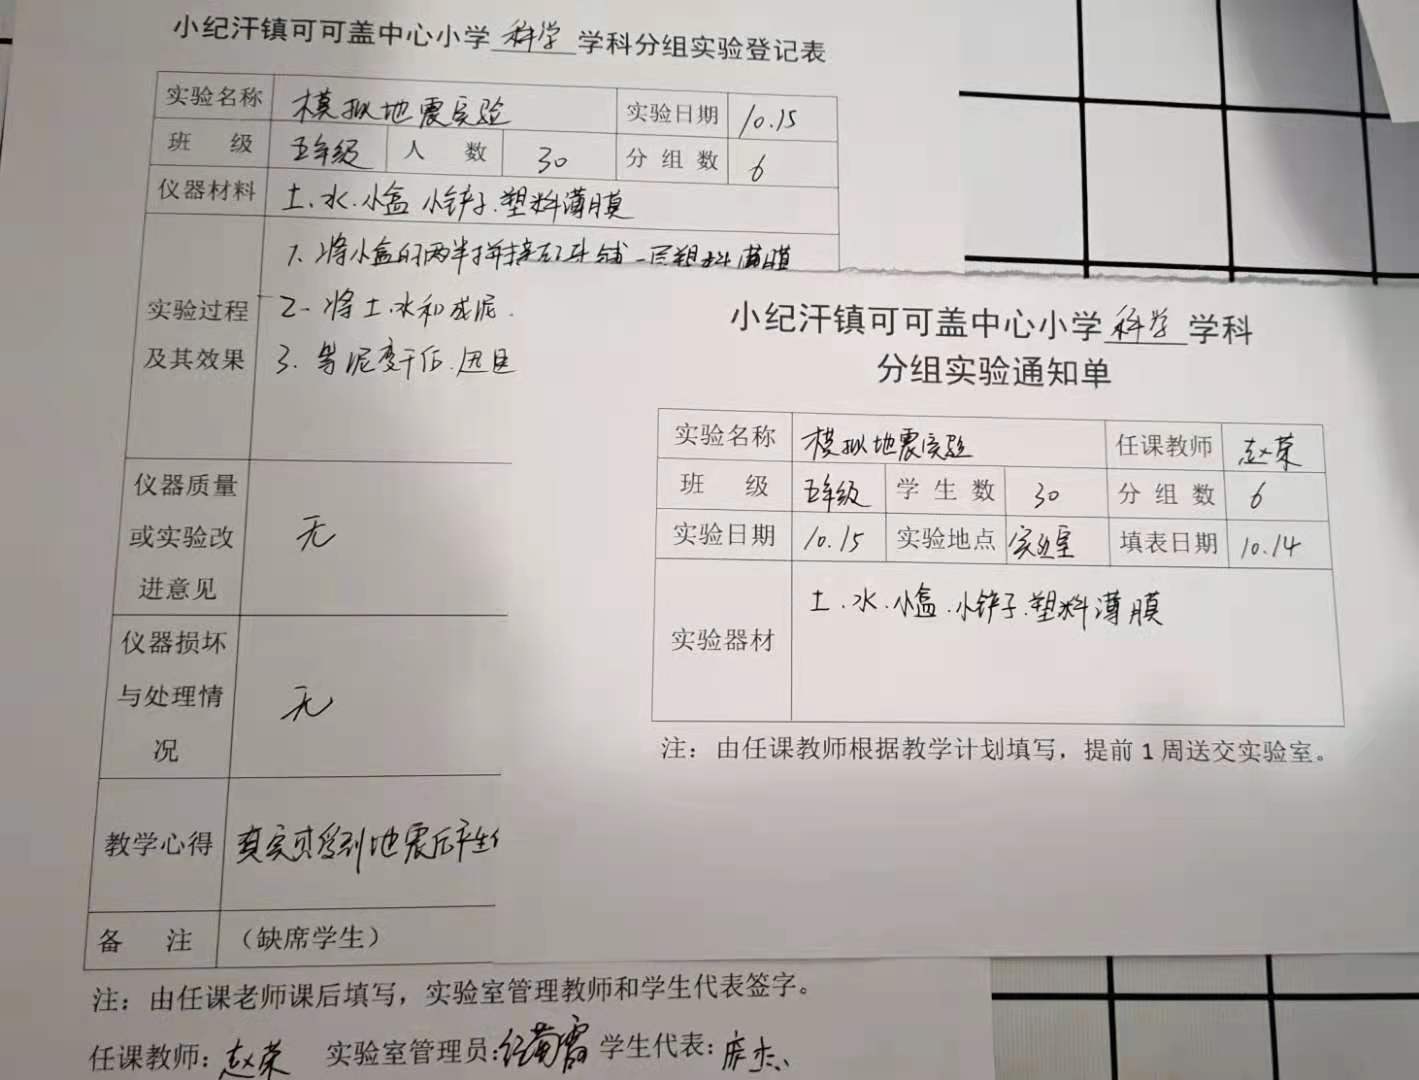 小纪汗镇可可盖中心小学 科学 学科分组实验登记表
实验名称 模拟地震实验 实验日期 10.15
班 级 五年级 人 数 30 分组数 6
仪器材料 土.水.小盒 小铲子.塑料薄膜
1. 将小盒的两半拼接 铺一层塑料薄膜
实验过程 2- 将土.水和成泥.
及其效果 3. 等泥变干后.
仪器质量
或实验改 无
进意见
仪器损坏
与处理情 无
况
教学心得 真实感受到地震后产生
备 注 （缺席学生）
注：由任课老师课后填写，实验室管理教师和学生代表签字。
任课教师: 赵荣 实验室管理员: 学生代表:
小纪汗镇可可盖中心小学 科学 学科
分组实验通知单
实验名称 模拟地震实验 任课教师 赵荣
班 级 五年级 学生数 30 分组数 6
实验日期 10.15 实验地点 实验室 填表日期 10.14
实验器材 土.水.小盒.小铲子.塑料薄膜
注：由任课教师根据教学计划填写，提前1周送交实验室。